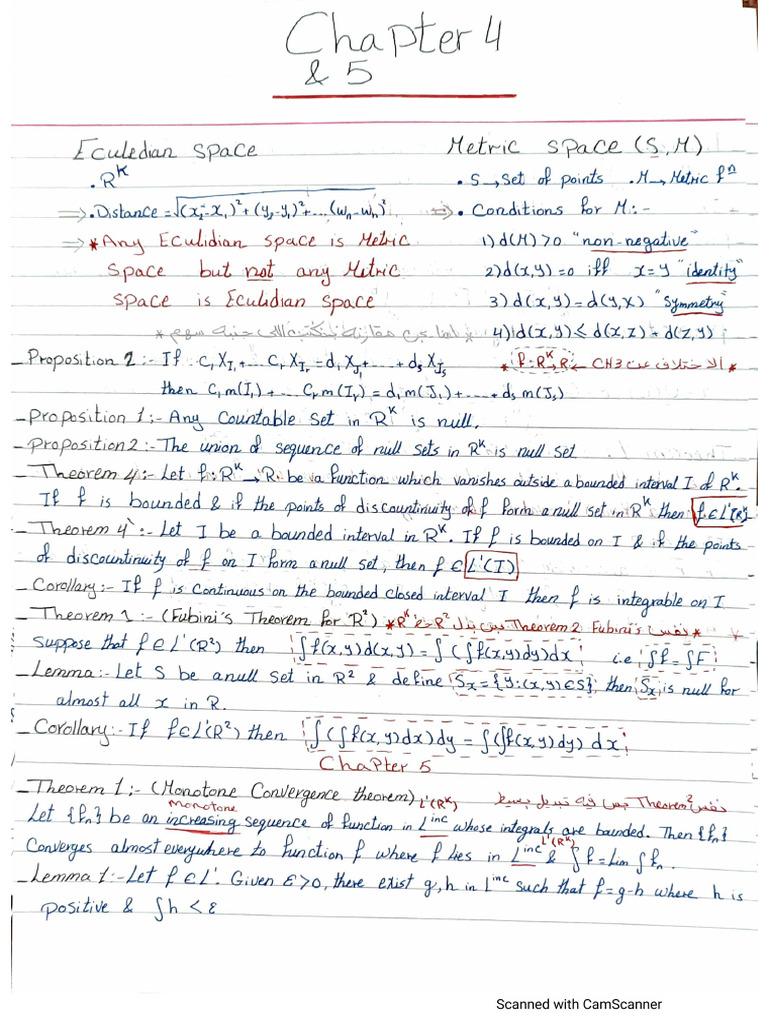 Chapter 4
& 5
Eculedian space
Metric space (S, M)
. R^K
. S → Set of points . M → Metric f^n
⇒ . Distance = √(x₂-x₁)²+(y₂-y₁)²+...(wₙ-wₙ)²
⇒ . Conditions for M:-
⇒ * Any Eculidian space is Metric
1) d(M) > 0 "non-negative"
space but not any Metric
2) d(x,y) = 0 iff x=y "identity"
space is Eculidian space
3) d(x,y) = d(y,x) "Symmetry"
4) d(x,y) ≤ d(x,z) + d(z,y)
_ Proposition 2:- If C₁X_I₁+... Cᵣ X_Iᵣ = d₁ X_J₁+ ... + dₛ X_Jₛ
* الاختلاف عن CH3 ← f: R^K → R *
then C₁ m(I₁) + ... Cᵣ m(Iᵣ) = d₁ m(J₁) + ... + dₛ m(Jₛ)
_ Proposition 1:- Any Countable set in R^K is null.
_ Proposition 2:- The union of sequence of null sets in R^K is null set
_ Theorem 4:- Let f: R^K → R be a function which vanishes outside a bounded interval I of R^K.
If f is bounded & if the points of discountinuity of f form a null set in R^K then f ∈ L'(R^K)
_ Theorem 4`:- Let I be a bounded interval in R^K. If f is bounded on I & if the points
of discountinuity of f on I form a null set, then f ∈ L'(I)
_ Corollary:- If f is continuous on the bounded closed interval I then f is integrable on I
_ Theorem 1:- (Fubini's Theorem for R²) * نفس Theorem 2 Fubini's بس بدل R² → R^K *
Suppose that f ∈ L'(R²) then ∫ f(x,y)d(x,y) = ∫ (∫ f(x,y)dy)dx i.e ∫f = ∫F
_ Lemma:- Let S be a null set in R² & define Sx = {y:(x,y) ∈ S} then Sx is null for
almost all x in R.
_ Corollary:- If f ∈ L'(R²) then ∫ (∫ f(x,y)dx)dy = ∫ (∫ f(x,y)dy) dx
Chapter 5
_ Theorem 1:- (Monotone Convergence theorem) L'(R^K) نفس Theorem 2 بس فيه تبديل بسيط
monotone
Let {fₙ} be an increasing sequence of function in L^inc whose integrals are bounded. Then {fₙ}
L'(R^K)
Converges almost everywhere to function f where f lies in L^inc & ∫ f = Lim ∫ fₙ.
_ Lemma 1:- Let f ∈ L'. Given ε > 0, there exist g, h in L^inc such that f = g-h where h is
positive & ∫h < ε
Scanned with CamScanner